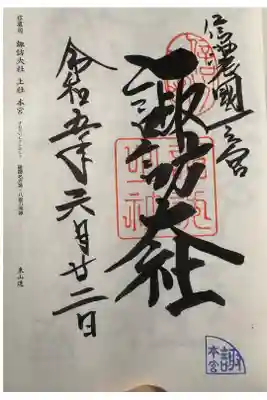 信濃國一之宮
諏訪大社
令和五年六月廿二日
信濃国 諏訪大社 上社 本宮
東山道
諏
本宮